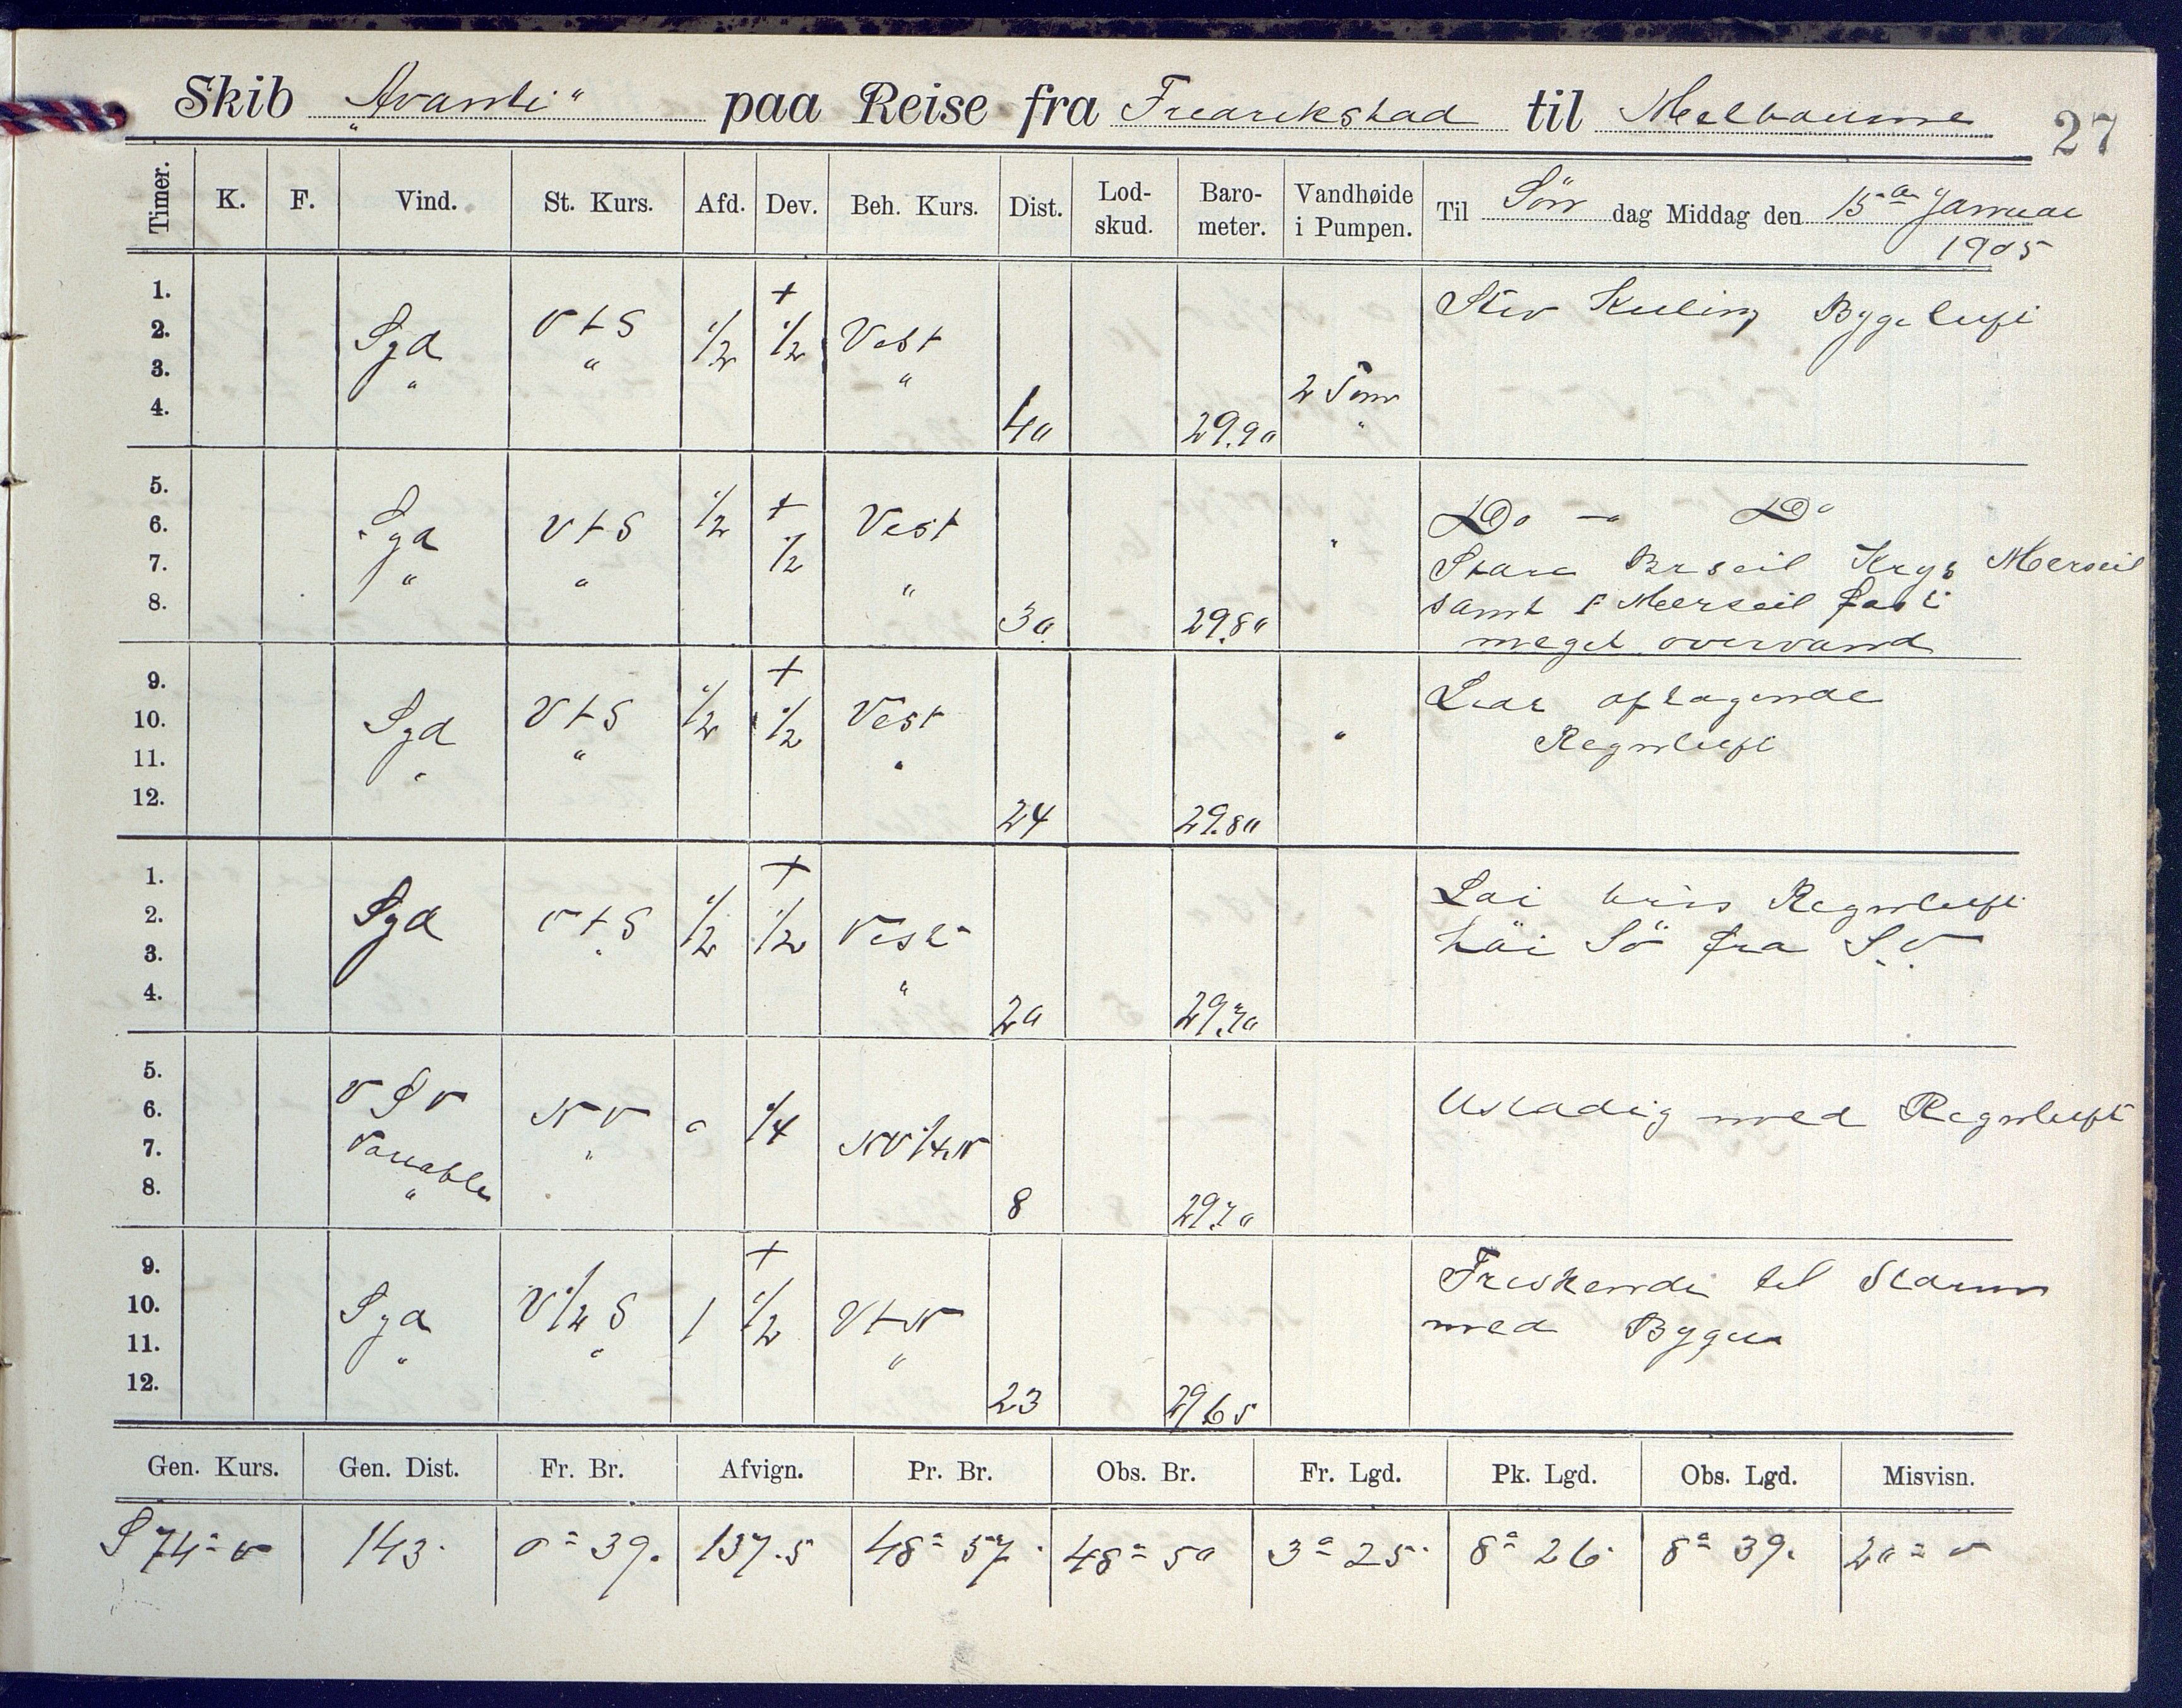 Skib „Avanti" paa Reise fra Fredrikstad til Melbourne 27
Timer. K. F. Vind. St. Kurs. Afd. Dev. Beh. Kurs. Dist. Lod-skud. Baro-meter. Vandhøide i Pumpen. Til Sön dag Middag den 15de Januar
1905
1. +
2. Syd V t S 1/2 1/2 Vest Stiv Kuling Bygeluft
3. " " " 2 Tom
4. 40 29.90 "
5.
6. Syd V t S 1/2 + Vest " Do — Do
7. " " 1/2 " Storseil Krys Merseil
8. 30 29.80 samt F Merseil fast
meget overvand
9. + Liar aftagende
10. Syd V t S 1/2 1/2 Vest " Regnluft
11. " " "
12. 24 29.80
1. + Lai bris Regnluft
2. Syd V t S 1/2 1/2 Vest
3. " häi Sö fra S.V
4. " 20 29.70
5. V S V
6. N V 0 1/4 Ustadig med Regnluft
7. Variabler " NV 1/4 N
8. " 8 29.70
9. + Friskendi til Storm
10. Syd V 1/2 S 1 1/2 V t N med Byger
11. " " "
12. 23 29.65
Gen. Kurs. Gen. Dist. Fr. Br. Afvign. Pr. Br. Obs. Br. Fr. Lgd. Pk. Lgd. Obs. Lgd. Misvisn.
S 74° V 143. 0° 39. 137.5 48° 57. 48° 50 3° 25. 8° 26. 8° 39. 20° V